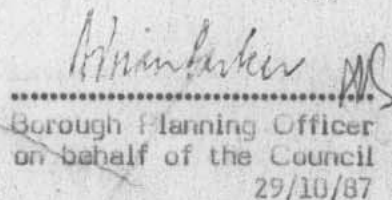 Adrian Parker
Borough Planning Officer
on behalf of the Council
29/10/87